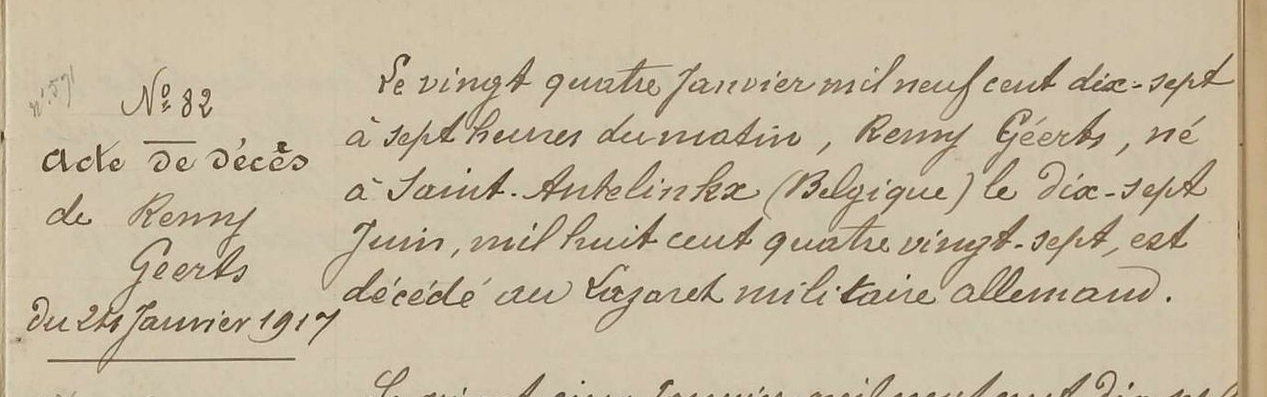 n°. 571
N° 82
Acte de décès
de Remy
Geerts
du 24 Janvier 1917
Le vingt quatre Janvier mil neuf cent dix-sept
à sept heures du matin, Remy Géerts, né
à Saint-Antelinkx (Belgique) le dix-sept
Juin, mil huit cent quatre vingt-sept, est
décédé au Lazaret militaire allemand.